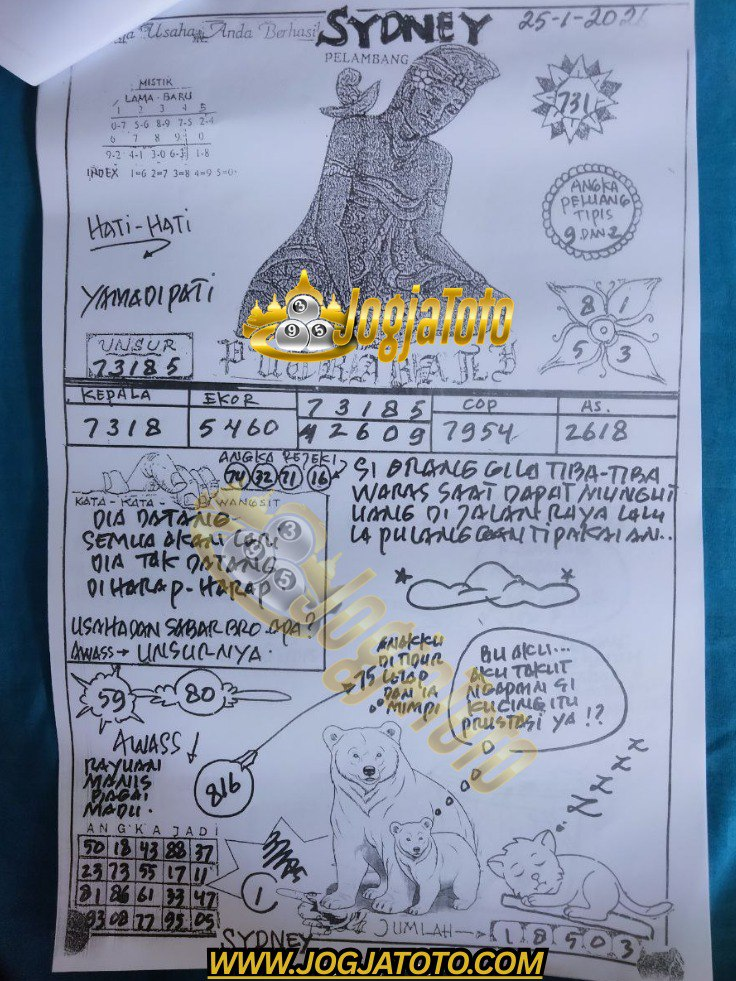 Usaha Anda Berhasil
SYDNEY
25-1-2021
PELAMBANG
MISTIK
LAMA - BARU
1 2 3 4 5
0-7 5-6 8-9 7-5 2-4
6 7 8 9 0
9-2 4-1 3-0 6-3 1-8
INDEX 1=6 2=7 3=8 4=9 5=0
731
ANGKA
PELUANG
TIPIS
9 DAN 2
HATI-HATI
YAMADIPATI
8 1
5 3
JogjaToto
UNSUR
73185
KEPALA
EKOR
73185
COP
AS.
7318
5460
42609
7954
2618
ANGKA REJEKI
74 32 71 16
KATA - KATA - WANGSIT
DIA DATANG
SEMUA AKAN LARI
DIA TAK DATANG
DI HARAP-HARAP
USAHA DAN SABAR BRO. APA?
AWASS → UNSURNYA.
SI ORANG GILA TIBA-TIBA
WARAS SAAT DAPAT MUNGUT
UANG DI JALAN RAYA LALU
LA PULANG GANTI PAKAIAN..
JogjaToto
59
80
ANAKKU
DI TIDUR
75 LELAP
DAN IA
MIMPI
BU AKU...
AKU TAKUT
NGAPAIN SI
KUCING ITU
PRUSTASI YA !?
AWASS
RAYUAN
MANIS
BAGAI
MADU.
816
ZZZZ
ANGKA JADI
50 18 43 88 37
23 73 55 17 11
81 86 61 33 47
93 08 77 95 05
1
SYDNEY
JUMLAH → 1 8 5 0 3
WWW.JOGJATOTO.COM